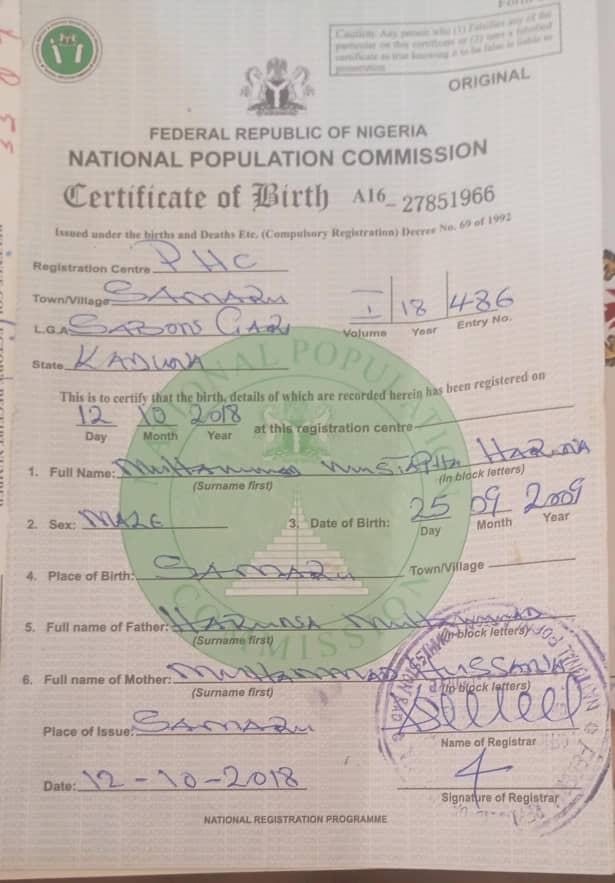 Caution: Any person who (1) Falsifies any of the
particular on this certificate or (2) uses a falsified
certificate as true knowing it to be false is liable to
prosecution
ORIGINAL
FEDERAL REPUBLIC OF NIGERIA
NATIONAL POPULATION COMMISSION
Certificate of Birth A16_ 27851966
Issued under the births and Deaths Etc. (Compulsory Registration) Decree No. 69 of 1992
Registration Centre PHC
Town/Village SAMARU
I 18 486
Volume Year Entry No.
L.G.A SABONS GARI
State KADUNA
NATIONAL POPULATION COMMISSION
This is to certify that the birth, details of which are recorded herein has been registered on
12 10 2018 at this registration centre
Day Month Year
1. Full Name: MUHAMMAD MUSTAPHA HARUNA
(Surname first) (In block letters)
2. Sex: MALE 3. Date of Birth: 25 09 2009
Day Month Year
4. Place of Birth: SAMARU Town/Village
5. Full name of Father: HARUNA MUHAMMAD
(Surname first) (In block letters)
6. Full name of Mother: MUHAMMAD HUSSANA
(Surname first) (In block letters)
Place of Issue: SAMARU
Name of Registrar
Date: 12-10-2018
Signature of Registrar
NATIONAL REGISTRATION PROGRAMME